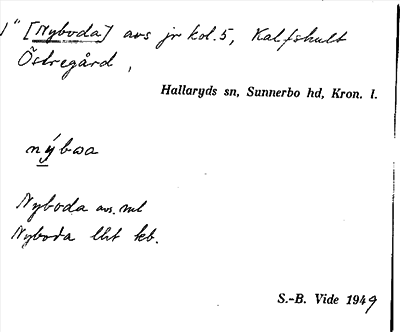 1" [Nyboda] avs jr kol. 5, Kalfshult
Östregård,
Hallaryds sn, Sunnerbo hd, Kron. l.
nýboa
Nyboda avs. ml
Nyboda lht kb.
S.-B. Vide 1949